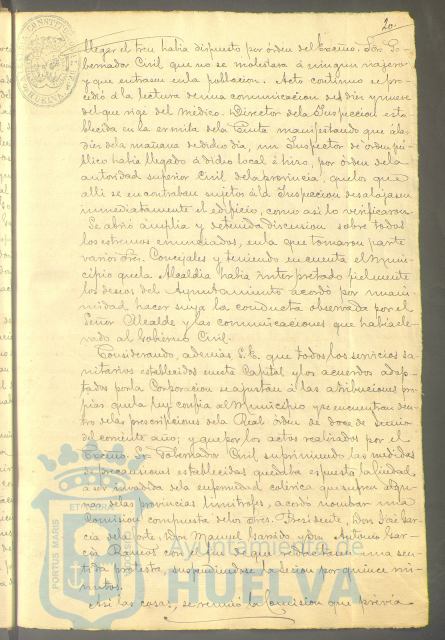 20
llegar el tren habia dispuesto por orden del Excmo. Sor Go-
bernador Civil que no se molestara á ningun viajero
y que entrasen en la poblacion. Acto continuo se pro-
cedió á la lectura de una comunicacion del dia y nueve
del que rige del Médico. Director de la Inspeccion esta-
blecida en la ermita de la Cinta manifestando que á las
diez de la mañana de dicho dia, un Inspector de órden pú-
blico habia llegado á dicho local é hizo, por órden de la
autoridad superior Civil de la provincia, que los que
alli se encontraban sujetos á la Inspeccion desalojasen
inmediatamente el edificio, como asi lo verificaron.
Se abrió amplia y detenida discusion sobre todos
los estremos enunciados, en la que tomaron parte
varios Sres. Concejales y teniendo en cuenta el Muni-
cipio que la Alcaldia habia interpretado fielmente
los deseos del Ayuntamiento acordó por unani-
midad hacer suya la conducta observada por el
Señor Alcalde y las comunicaciones que habia ele-
vado al Gobierno Civil.
Considerando, ademas S.E. que todos los servicios sa-
nitarios establecidos en esta Capital y los acuerdos adop-
tados por la Corporacion se ajustan á las atribuciones pro-
pias que la ley confia al Municipio y se encuentran den-
tro de las prescripciones de la Real órden de doce de Junio
del corriente año; y que por los actos realizados por el
Excmo. Sr. Gobernador Civil suprimiendo las medidas
de precauciones establecidas quedaba espuesta la Ciudad,
á ser invadida de la enfermedad colérica que sufren algu-
nas de las provincias limitrofes, acordó nombrar una
Comision compuesta de los Sres. Presidente, Don José Gar-
cia de la Corte, Don Manuel Garrido y Don Antonio Gar-
cia Ramos con objeto de que redactaran una sen-
tida protesta, suspendiendose la sesion por quince mi-
nutos.
Asi las cosas, se reunió la Comision que prévia
PORTUS MARIS
Ayuntamiento de
HUELVA